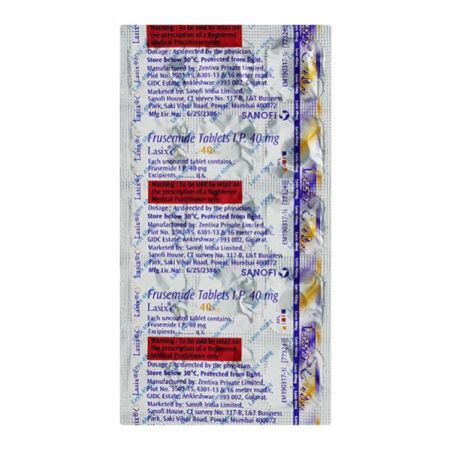 Warning : To be sold by retail on
the prescription of a Registered
Medical Practitioner only.
Dosage : As directed by the physician.
Store below 30°C, Protected from light.
Manufactured by: Zentiva Private Limited,
Plot No. 3501-15, 6301-13 & 16 meter road/c,
GIDC Estate, Ankleshwar - 393 002, Gujarat.
Marketed by: Sanofi India Limited,
Sanofi House, CT survey No. 117-B, L&T Business
Park, Saki Vihar Road, Powai, Mumbai 400072
Mfg.Lic.No.: G/25/2386
SANOFI
Frusemide Tablets I.P. 40 mg
Lasix® 40
Each uncoated tablet contains
Frusemide I.P. 40 mg
Excipients q.s.
Warning : To be sold by retail on
the prescription of a Registered
Medical Practitioner only.
Dosage : As directed by the physician.
Store below 30°C, Protected from light.
Manufactured by: Zentiva Private Limited,
Plot No. 3503-15, 6301-13 & 16 meter road/c,
GIDC Estate, Ankleshwar - 393 002, Gujarat.
Marketed by: Sanofi India Limited,
Sanofi House, CT survey No. 117-B, L&T Business
Park, Saki Vihar Road, Powai, Mumbai 400072
Mfg.Lic.No.: G/25/2386
SANOFI
Frusemide Tablets I.P. 40 mg
Lasix® 40
Each uncoated tablet contains
Frusemide I.P. 40 mg
Excipients q.s.
Warning : To be sold by retail on
the prescription of a Registered
Medical Practitioner only.
Dosage : As directed by the physician.
Store below 30°C, Protected from light.
Manufactured by: Zentiva Private Limited,
Plot No. 3503-15, 6301-13 & 16 meter road/c,
GIDC Estate, Ankleshwar - 393 002, Gujarat.
Marketed by: Sanofi India Limited,
Sanofi House, CT survey No. 117-B, L&T Business
Park, Saki Vihar Road, Powai, Mumbai 400072